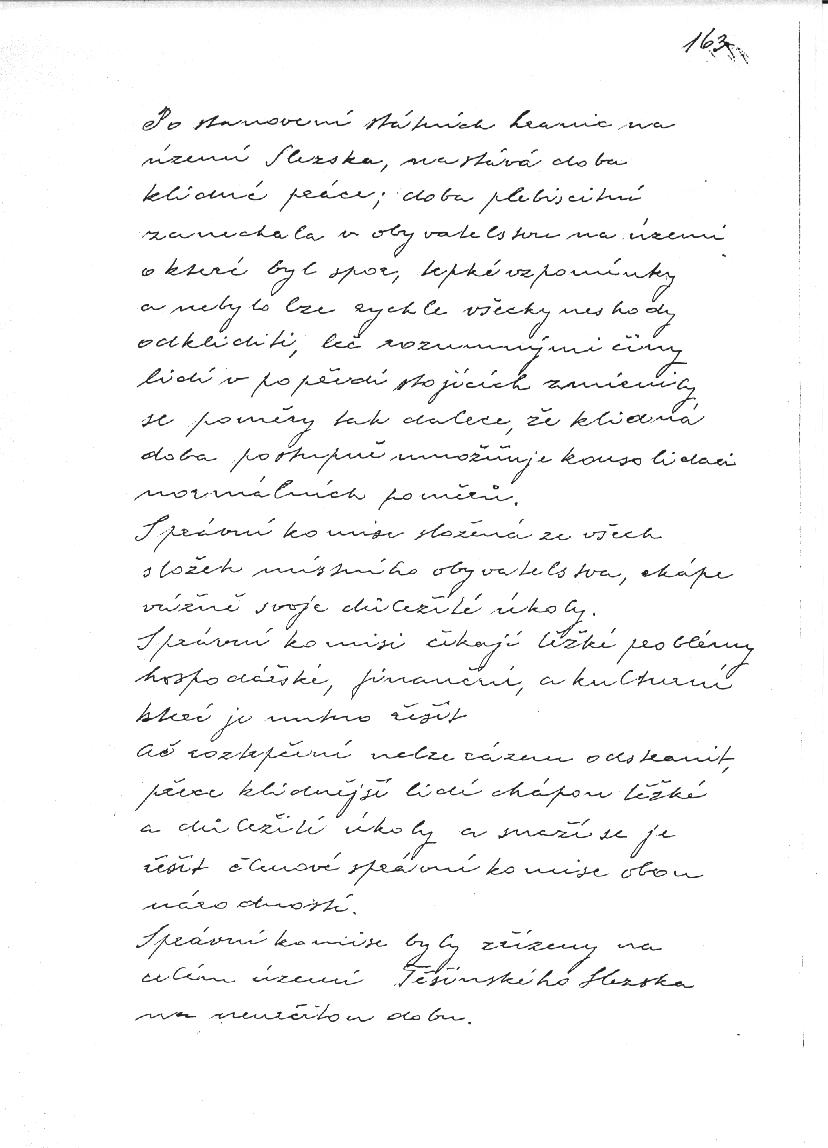 163
Po stanovení státních hranic na
území Slezska, nastává doba
klidné práce; doba plebiscitní
zanechala v obyvatelstvu na území
o které byl spor, trpké vzpomínky
a nebylo lze rychle všecky neshody
odkliditi, leč rozumnými činy
lidí v popředí stojících zmírnily
se poměry tak dalece, že klidná
doba postupně umožňuje konsolidaci
normálních poměrů.
Správní komise složená ze všech
složek místního obyvatelstva, chápe
vážně svoje důležité úkoly.
Správní komisi čekají těžké problémy
hospodářské, finanční, a kulturní
které je nutno řešit
Ač roztrpčení nelze rázem odstranit,
přece klidnější lidé chápou těžké
a důležité úkoly a snaží se je
řešit členové správní komise obou
národností.
Správní komise byly zřízeny na
celém území Těšínského Slezska
na neurčitou dobu.